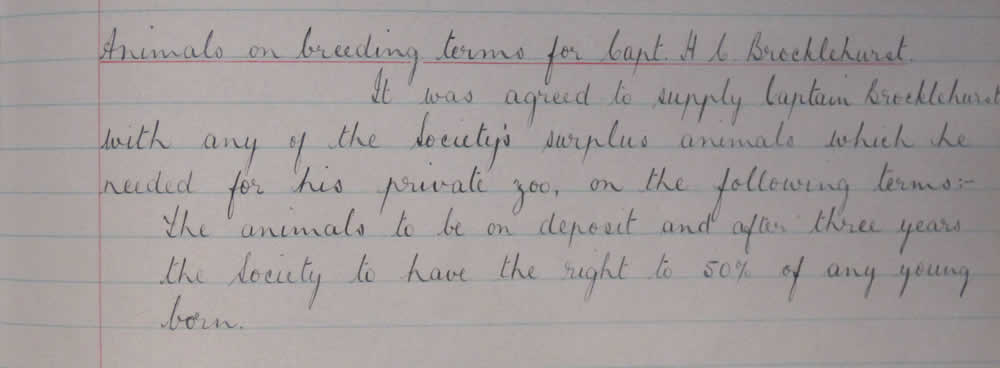 Animals on breeding terms for Capt. H C Brocklehurst.
It was agreed to supply Captain Brocklehurst
with any of the Society's surplus animals which he
needed for his private zoo, on the following terms:-
The animals to be on deposit and after three years
the Society to have the right to 50% of any young
born.